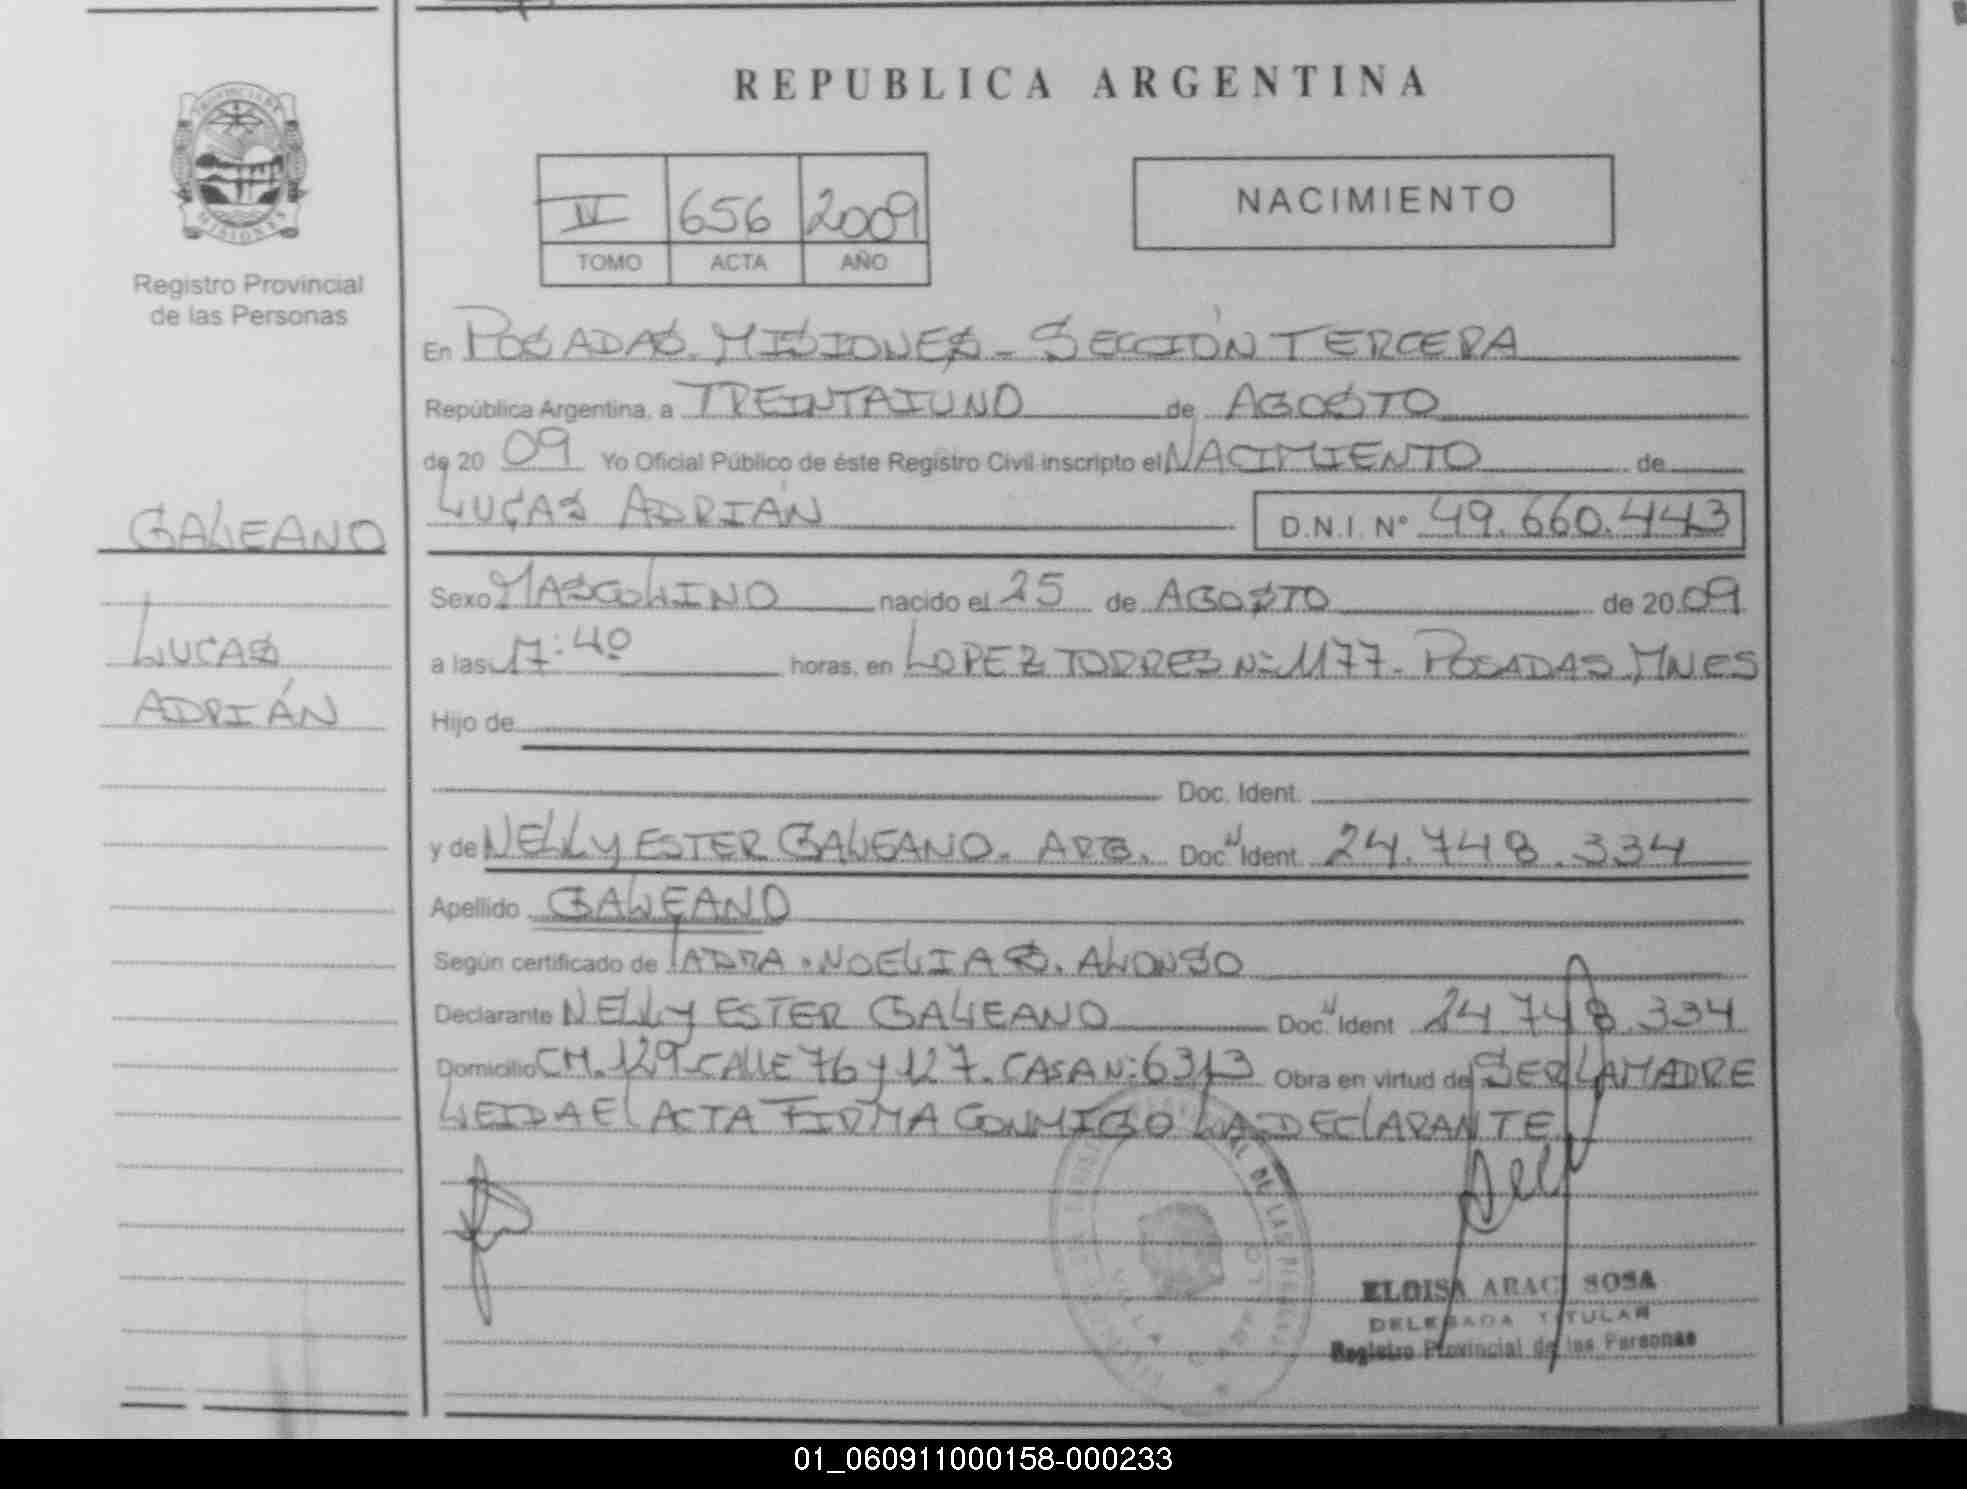 REPUBLICA ARGENTINA
PROVINCIA DE
MISIONES
Registro Provincial
de las Personas
IV 656 2009
TOMO ACTA AÑO
NACIMIENTO
En POSADAS. MISIONES - SECCIÓN TERCERA
República Argentina, a TREINTAIUNO de AGOSTO
de 20 09 Yo Oficial Público de éste Registro Civil inscripto el NACIMIENTO de
GALEANO
LUCAS ADRIÁN D.N.I. Nº 49.660.443
Sexo MASCULINO nacido el 25 de AGOSTO de 20 09
LUCAS
a las 17:40 horas, en LOPEZ TORRES Nº 1177. POSADAS. MNES
ADRIÁN
Hijo de
Doc. Ident.
y de NELLY ESTER GALEANO. ARG. Doc. N Ident 24.748.334
Apellido GALEANO
Según certificado de NOELIA S. ALONSO
Declarante NELLY ESTER GALEANO Doc. N Ident 24.748.334
Domicilio CH. 129 - CALLE 76 y 127. CASA Nº: 6313 Obra en virtud de SER LA MADRE
LEIDA EL ACTA FIRMA CONMIGO LA DECLARANTE
DE LAS
ELOISA ARACI SOSA
DELEGADA TITULAR
Registro Provincial de las Personas
01_060911000158-000233